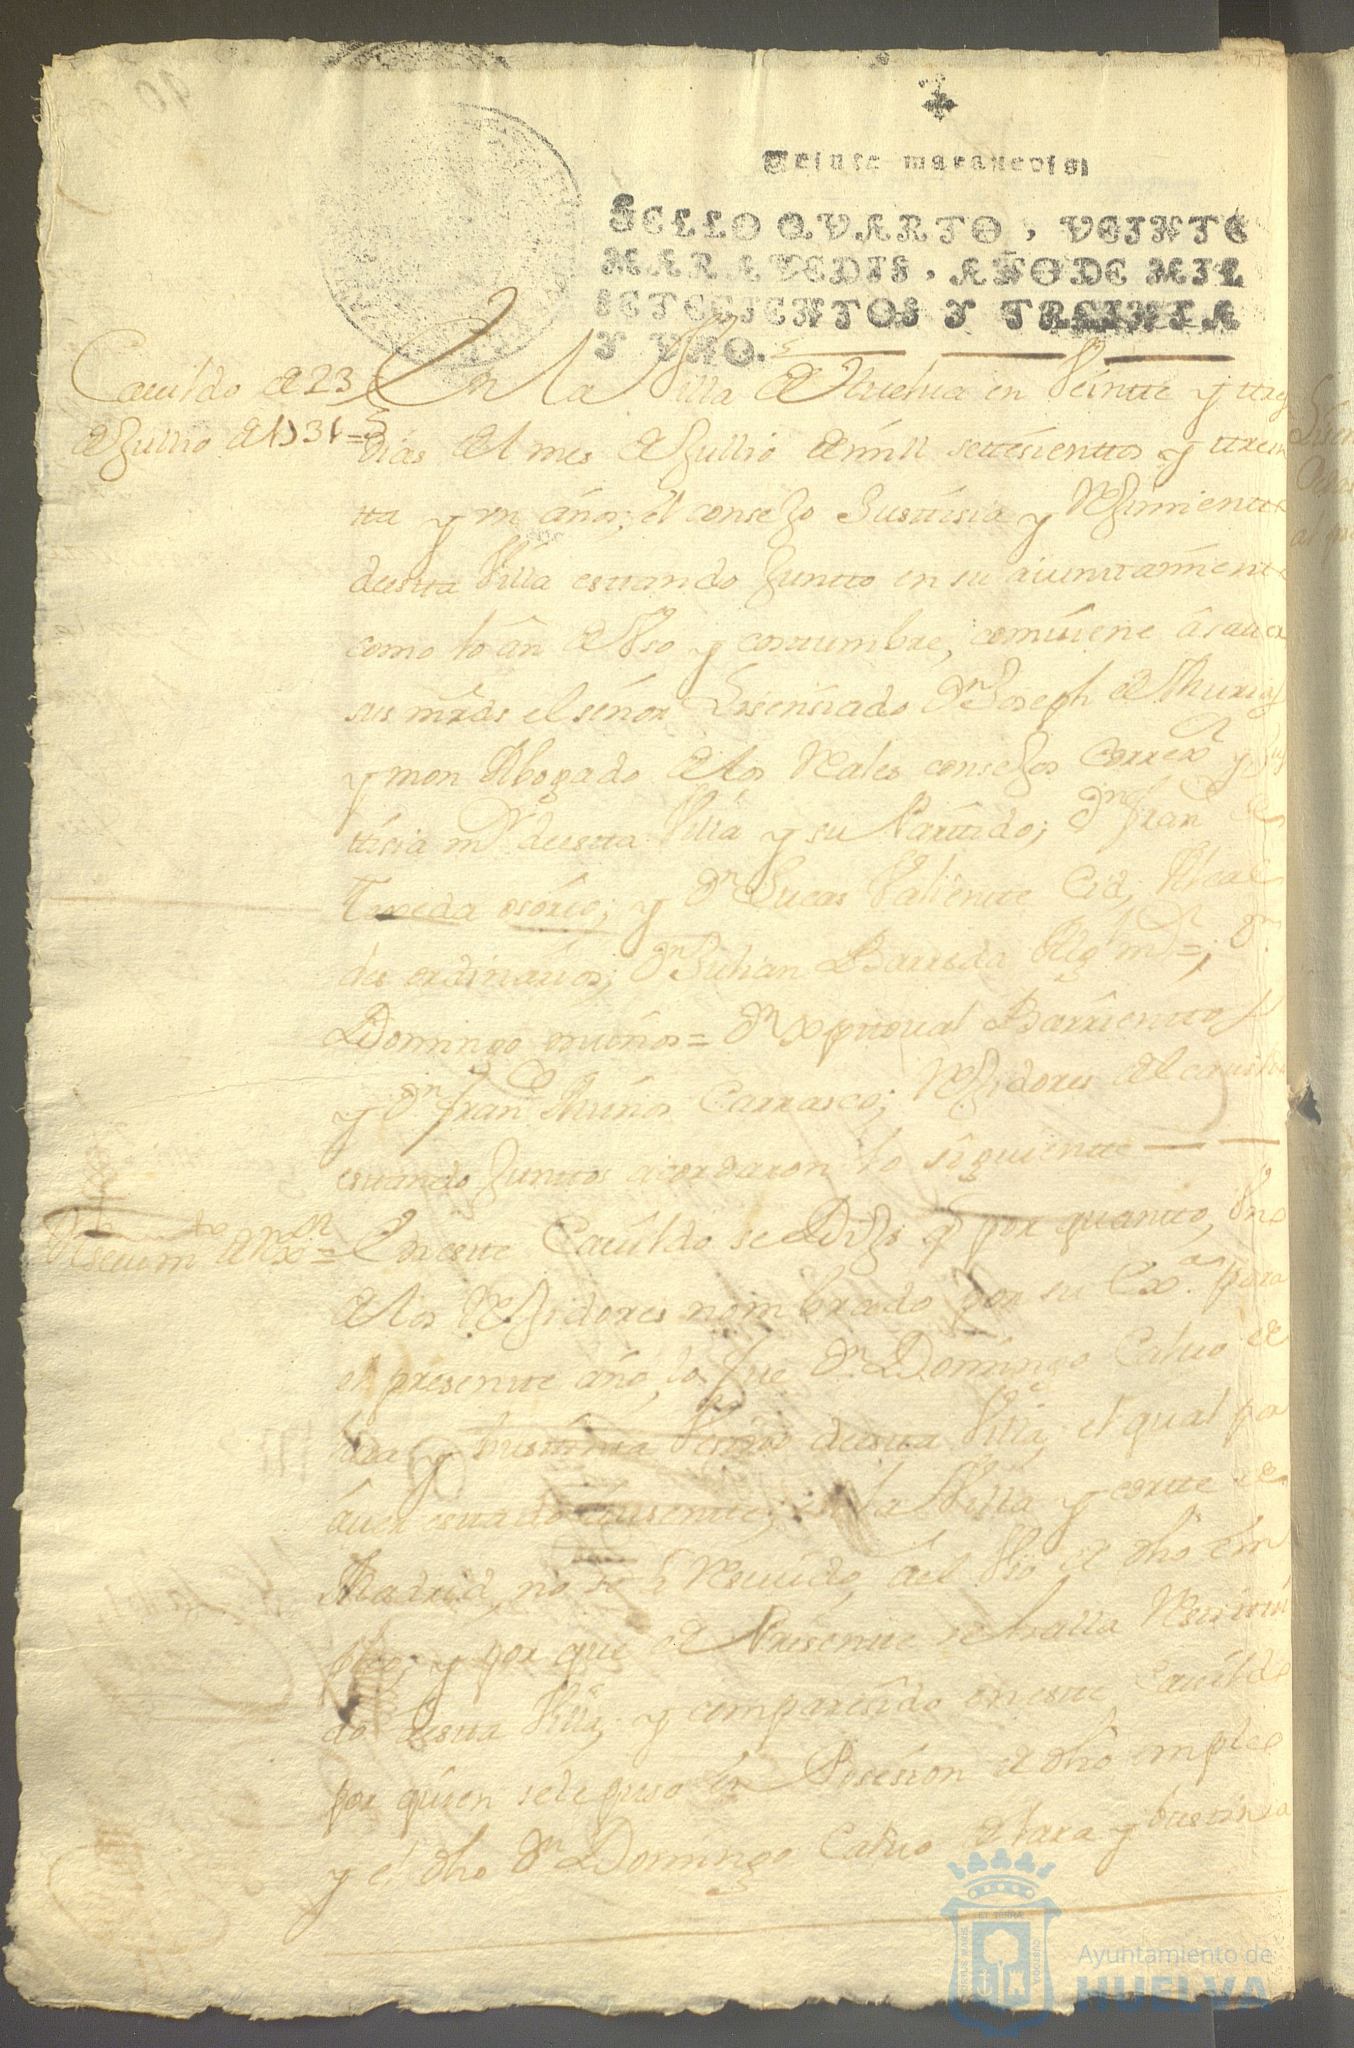 Veinte maravedis.
SELLO QVARTO, VEINTE
MARAVEDIS, AÑO DE MIL
SETECIENTOS Y TREINTA
Y VNO.
Cauildo de 23
de Jullio de 1731=
En la Villa de Huelua en Veintte y ttres
dias del mes de Jullio de mill settesienttos y ttrein
tta y un años; el consejo Justtisia y Rejimientto
destta Villa esttando Juntto en su aiunttamientto
como lo án de Vso y costtumbre, comviene ásauer
sus mrds el señor Lisensiado Dn Joseph de
y mon Abogado de los Reales consejos Correxr y Jus
ttisia mr destta Villa y su Parttido; Dn Franco de
osório; y Dn Lucas Valientte Cid, Alcal
des ordinarios; Dn Julian Barreda Algl mr=; Dn
Domingo muños= Dn Xpttoual Barrienttos
y Dn Franco Muños Carrasco; Rejidores del cauildo
esttando Junttos acordaron lo siguientte
Reseuimto de Rexor=
En estte Cauildo se Dijo q por quantto, Vno
de los Rejidores nombrado por su Exa. para
el presentte año, lo fue Dn Domingo Caluo de
lara y busttinsa Vezino destta Villa, el qual por
áuer esttado ausentte, en la Villa y cortte de
Madrid, no se á Reseuido ael Vso de dho em
pleo; y por que de Presentte se halla Resttitui
do destta Villa, y comparesido en estte Cauildo
por quien sele puso en Posesion de dho empleo
y el dho Dn Domingo Caluo de lara y busttinsa
Ayuntamiento de
HUELVA